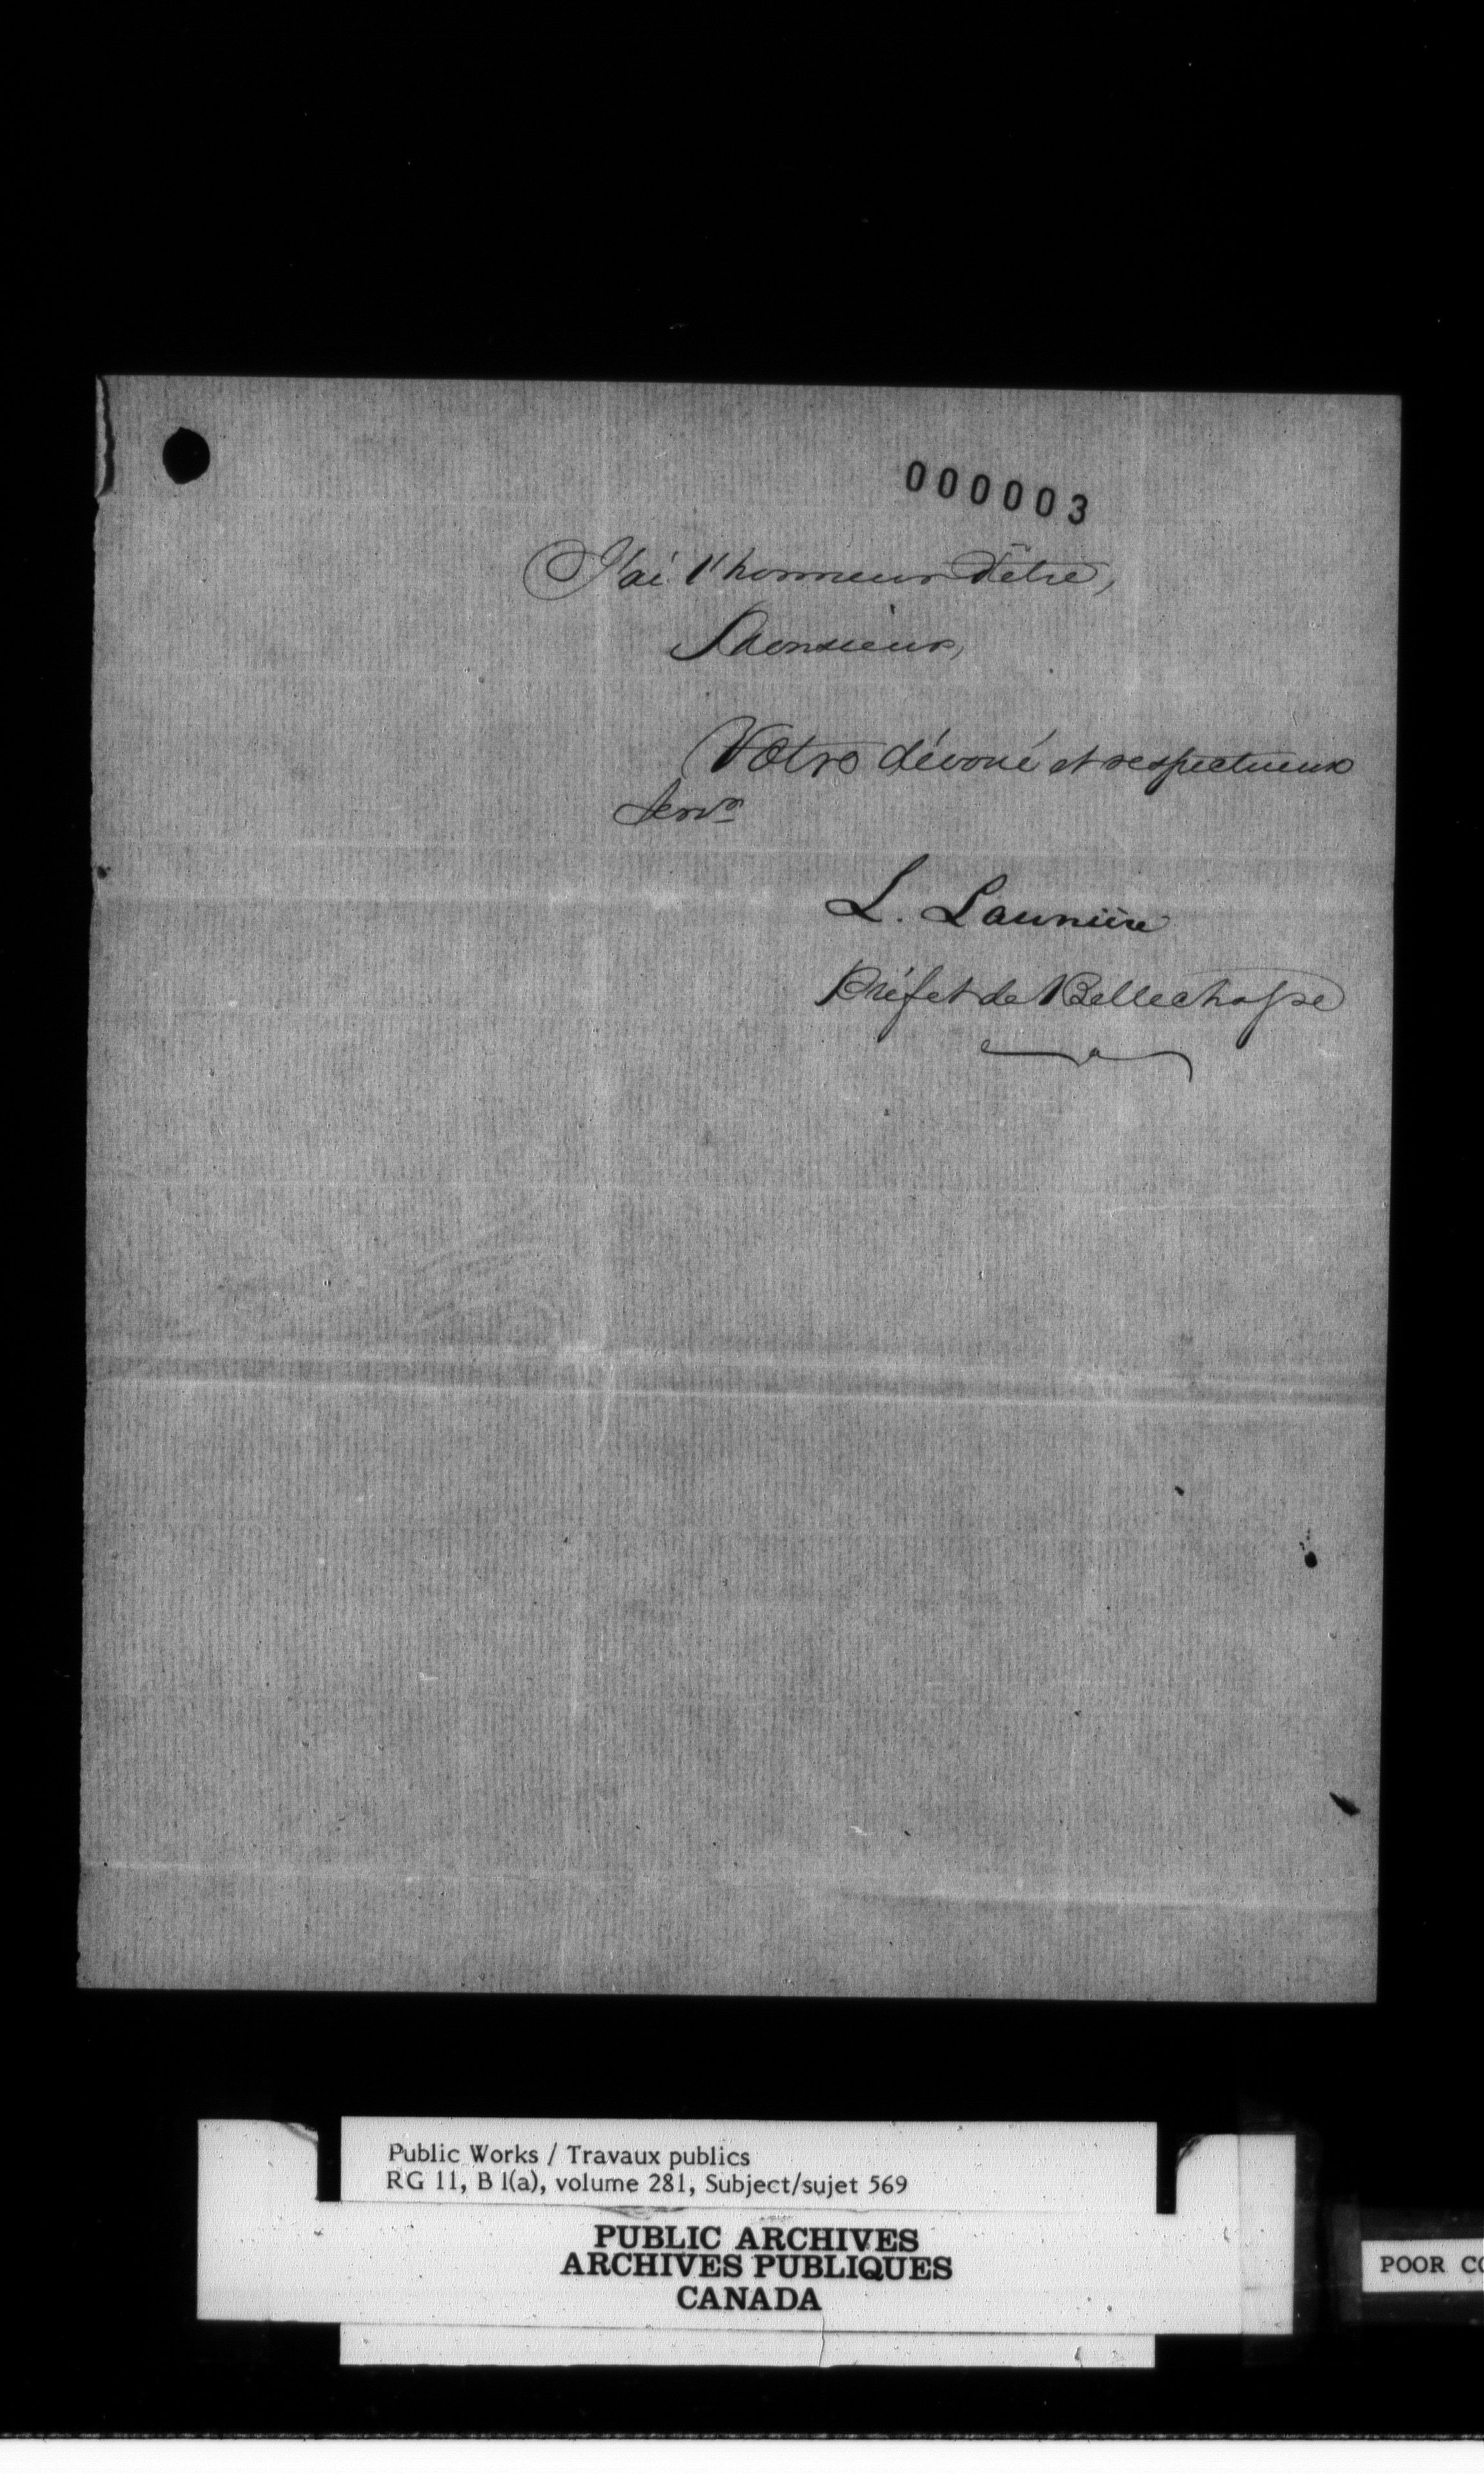 000003
J'ai l'honneur d'être,
Monsieur,
Votre dévoué et respectueux
servr
L. Launière
Préfet de Bellechasse
Public Works / Travaux publics
RG 11, B 1(a), volume 281, Subject/sujet 569
PUBLIC ARCHIVES
ARCHIVES PUBLIQUES
CANADA
POOR CO